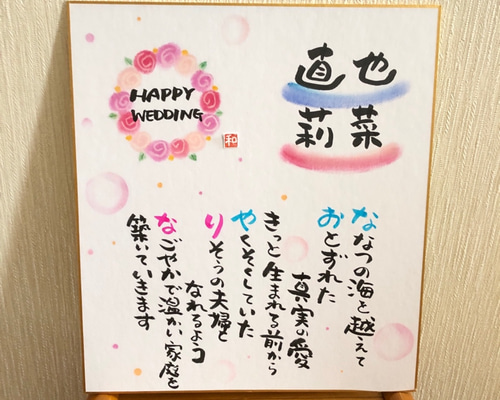 HAPPY
WEDDING
和
直也
莉菜
ななつの海を越えて
おとずれた
真実の愛
きっと生まれる前から
やくそくしていた
りそうの夫婦と
なれるよコ
なごやかで温かい家庭を
築いていきます